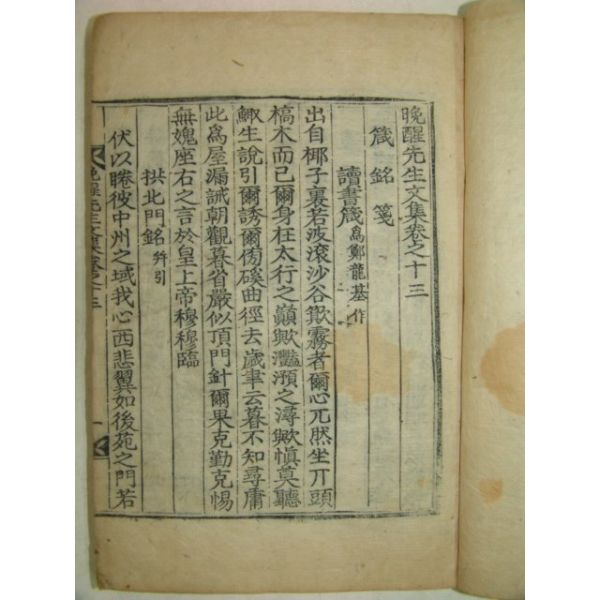 晩醒先生文集卷之十三
箴 銘 箋
讀書箴 爲鄭龍基作
出自椰子裏若波滾沙谷欻霧者爾心兀然坐丌頭
槁木而已爾身枉太行之巓歟灩澦之潯歟愼莫聽
鯫生說引爾誘爾傍磎曲徑去歲聿云暮不知尋庸
此爲屋漏誡朝觀暮省嚴似頂門針爾果克勤克惕
無媿座右之言於皇上帝穆穆臨
拱北門銘 幷引
伏以睠彼中州之域我心西悲翼如後苑之門若
晩醒先生文集卷之十三
一